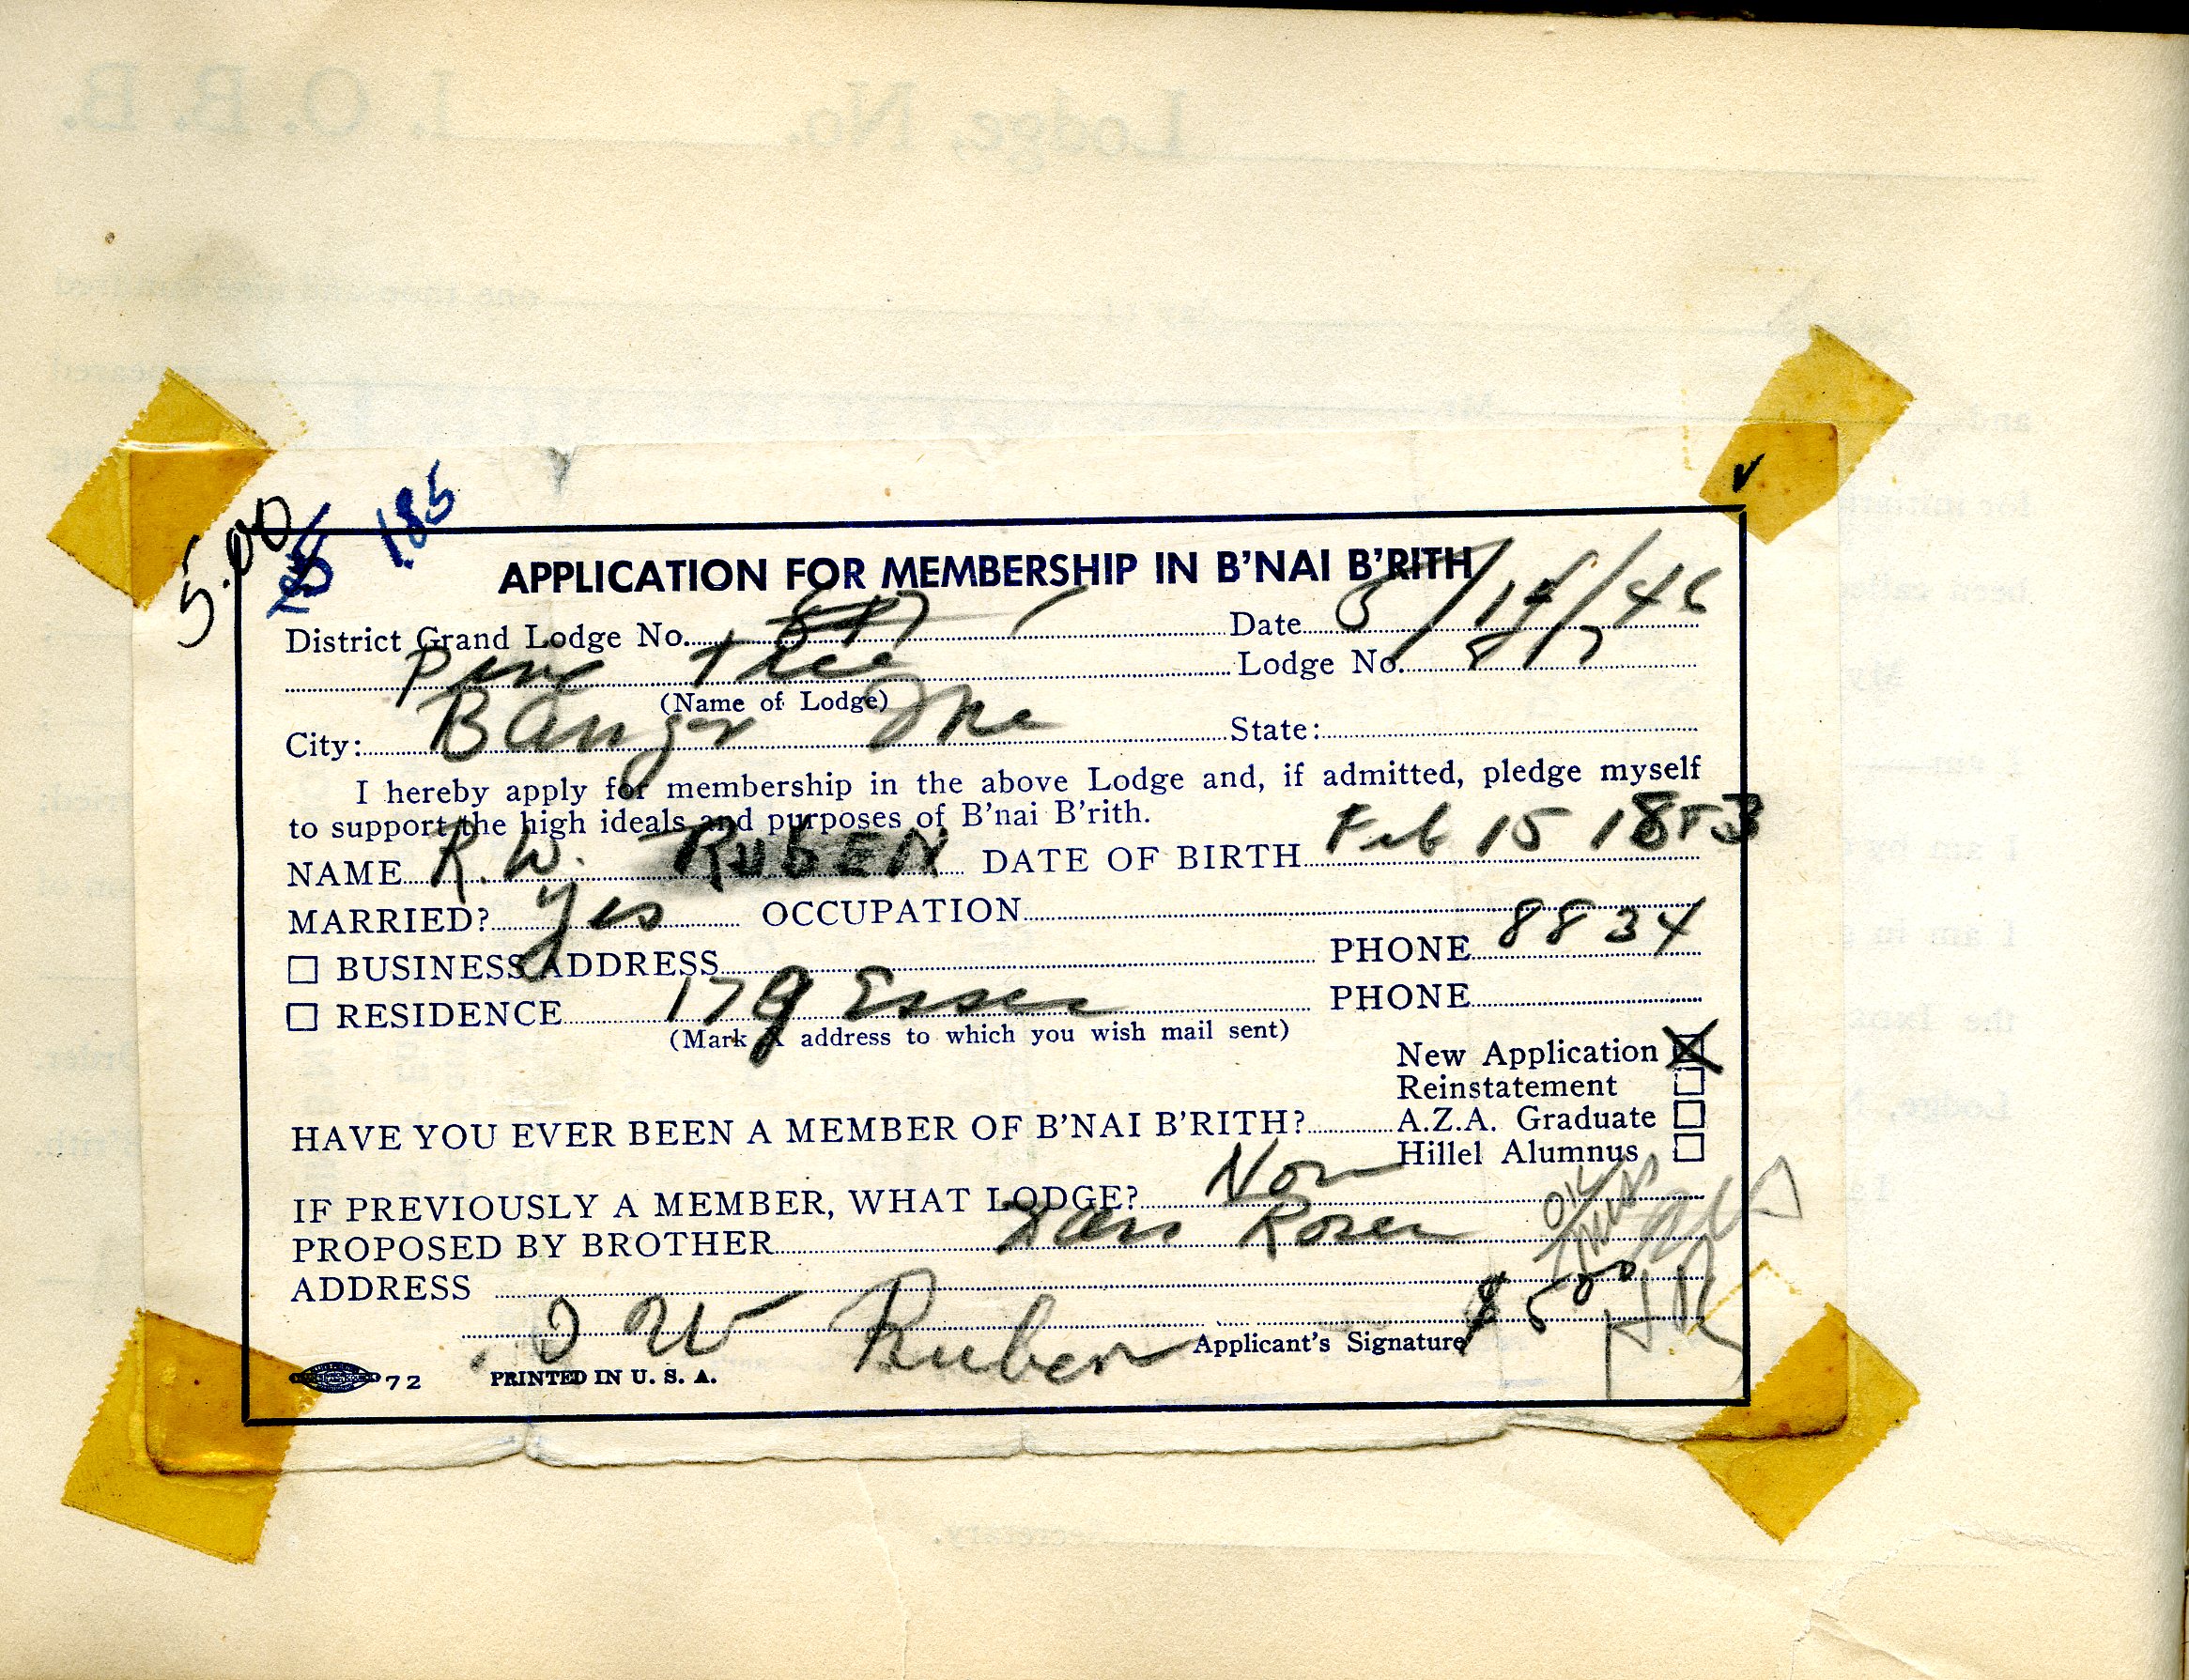 I. O. B. B.
Lodge, No.
5.00
185
APPLICATION FOR MEMBERSHIP IN B'NAI B'RITH
District Grand Lodge No. 817 Date 8/14/46
Pine Tree Lodge No. 817
(Name of Lodge)
City: Bangor Me State:
I hereby apply for membership in the above Lodge and, if admitted, pledge myself
to support the high ideals and purposes of B'nai B'rith.
NAME R. W. RUBEN DATE OF BIRTH Feb 15
MARRIED? Yes OCCUPATION
BUSINESS ADDRESS PHONE 8834
RESIDENCE 179 Essex PHONE
(Mark X address to which you wish mail sent)
New Application X
Reinstatement
HAVE YOU EVER BEEN A MEMBER OF B'NAI B'RITH? A.Z.A. Graduate
Hillel Alumnus
IF PREVIOUSLY A MEMBER, WHAT LODGE?
PROPOSED BY BROTHER Rosen
ADDRESS
OK
$ 5 00
W Ruben Applicant's Signature
72 PRINTED IN U. S. A.